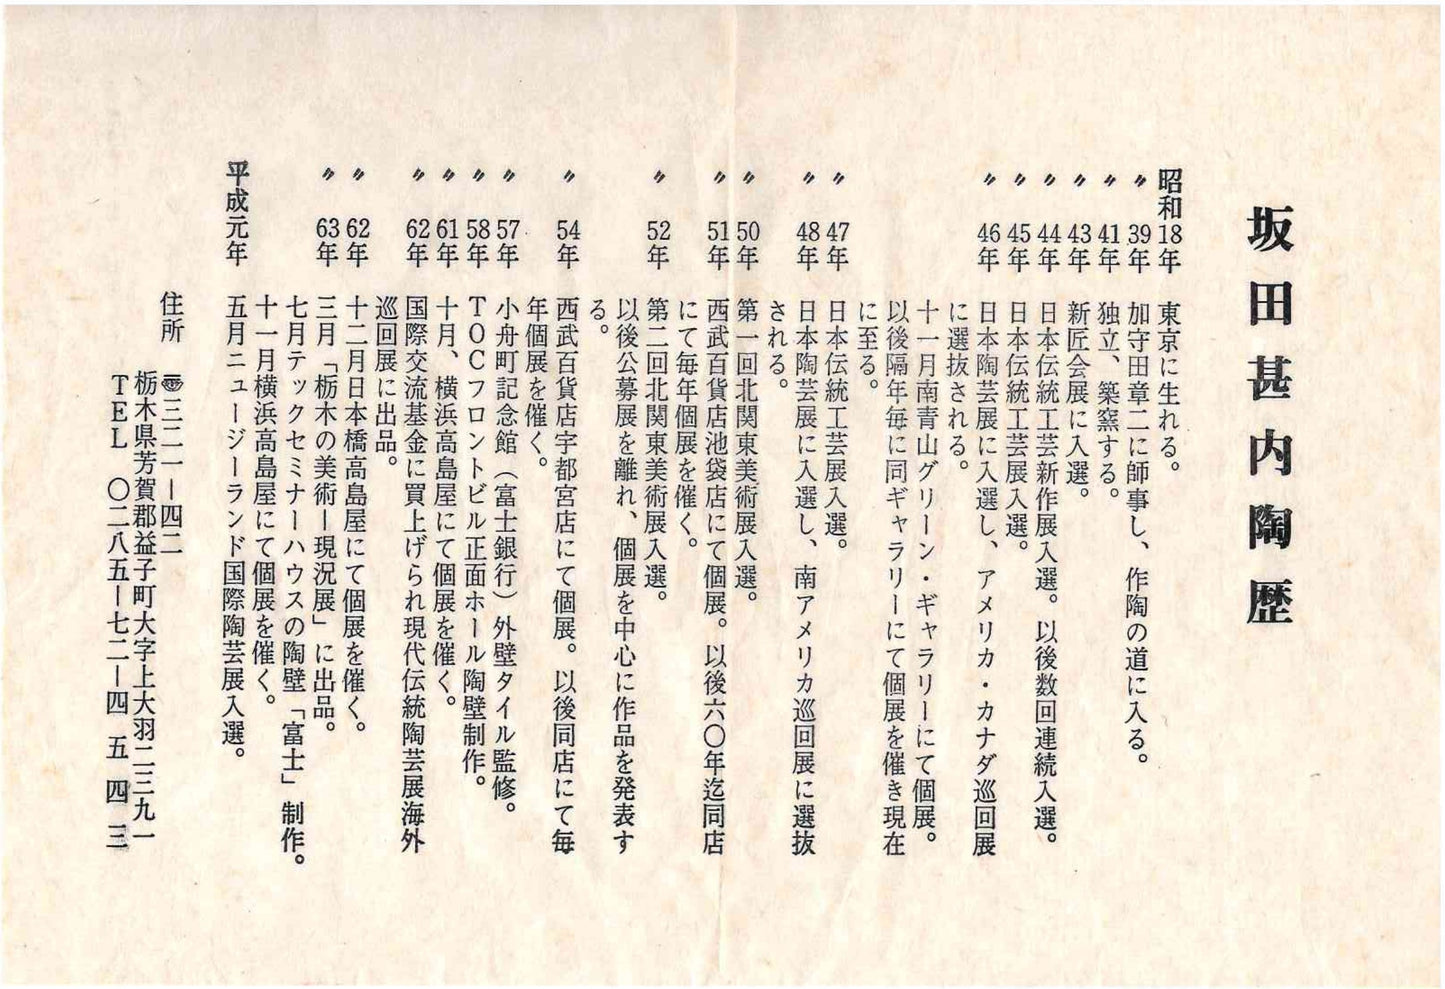 坂田甚内陶歴
昭和18年 東京に生れる。
〃 39年 加守田章二に師事し、作陶の道に入る。
〃 41年 独立、築窯する。
〃 43年 新匠会展に入選。
〃 44年 日本伝統工芸新作展入選。以後数回連続入選。
〃 45年 日本伝統工芸展入選。
〃 46年 日本陶芸展に入選し、アメリカ・カナダ巡回展
に選抜される。
十一月南青山グリーン・ギャラリーにて個展。
以後隔年毎に同ギャラリーにて個展を催き現在
に至る。
〃 47年 日本伝統工芸展入選。
〃 48年 日本陶芸展に入選し、南アメリカ巡回展に選抜
される。
〃 50年 第一回北関東美術展入選。
〃 51年 西武百貨店池袋店にて個展。以後六〇年迄同店
にて毎年個展を催く。
〃 52年 第二回北関東美術展入選。
以後公募展を離れ、個展を中心に作品を発表す
る。
〃 54年 西武百貨店宇都宮店にて個展。以後同店にて毎
年個展を催く。
〃 57年 小舟町記念館（富士銀行）外壁タイル監修。
〃 58年 TOCフロントビル正面ホール陶壁制作。
〃 61年 十月、横浜高島屋にて個展を催く。
〃 62年 国際交流基金に買上げられ現代伝統陶芸展海外
巡回展に出品。
〃 62年 十二月日本橋高島屋にて個展を催く。
〃 63年 三月「栃木の美術ー現況展」に出品。
七月テックセミナーハウスの陶壁「富士」制作。
十一月横浜高島屋にて個展を催く。
平成元年 五月ニュージーランド国際陶芸展入選。
住所 〠三二一ー四二
栃木県芳賀郡益子町大字上大羽二三九一
TEL 〇二八五ー七二ー四五四三